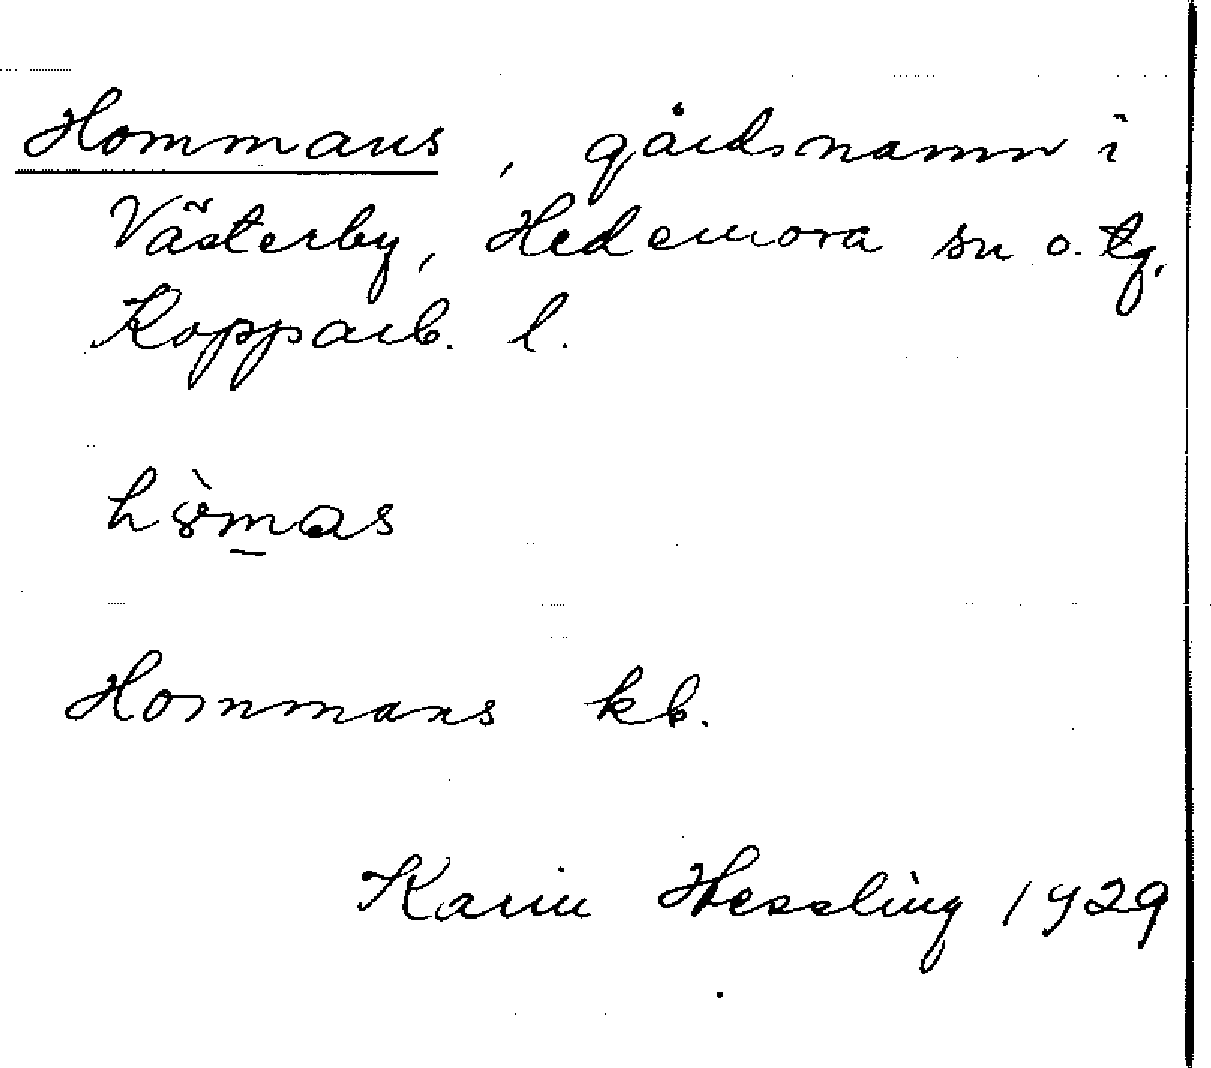 Hommans, gårdsnamn i
Västerby, Hedemora sn o. tg,
Kopparb. l.
Hommans kb.
Karin Hessling 1929